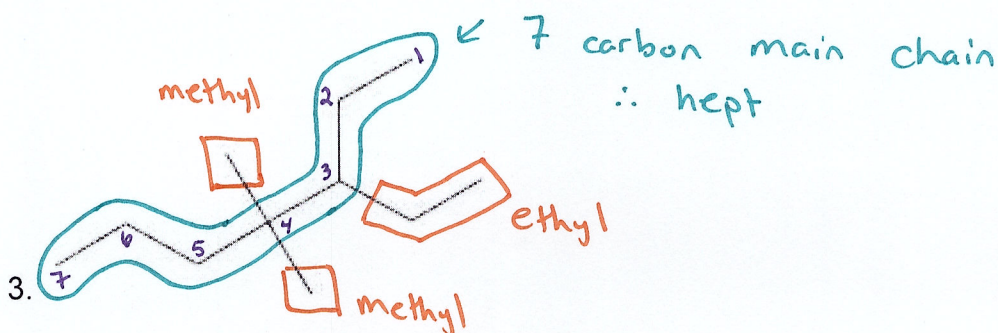 ← 7 carbon main chain
∴ hept
methyl
1
2
3
4
5
6
7
ethyl
methyl
3.